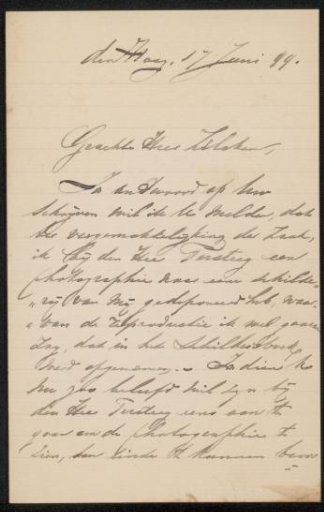 den Haag, 17 Juni 99.
Geachte Heer
In andwoord op Uw
schrijven wil ik U melde, dat
ter vergemakkelijking der zaak,
ik bij den Heer Tersteeg een
photographie naar een schilde-
"rij van mij gedeponeerd heb, waar-
"van de Reproductie ik wel gaarne
zag, dat in het Schildersboek
werd opgenomen. - Indien U
nu zoo beleefd wil zijn bij
den Heer Tersteeg eens aan te
gaan om de photographie te
zien, ten einde te kunnen